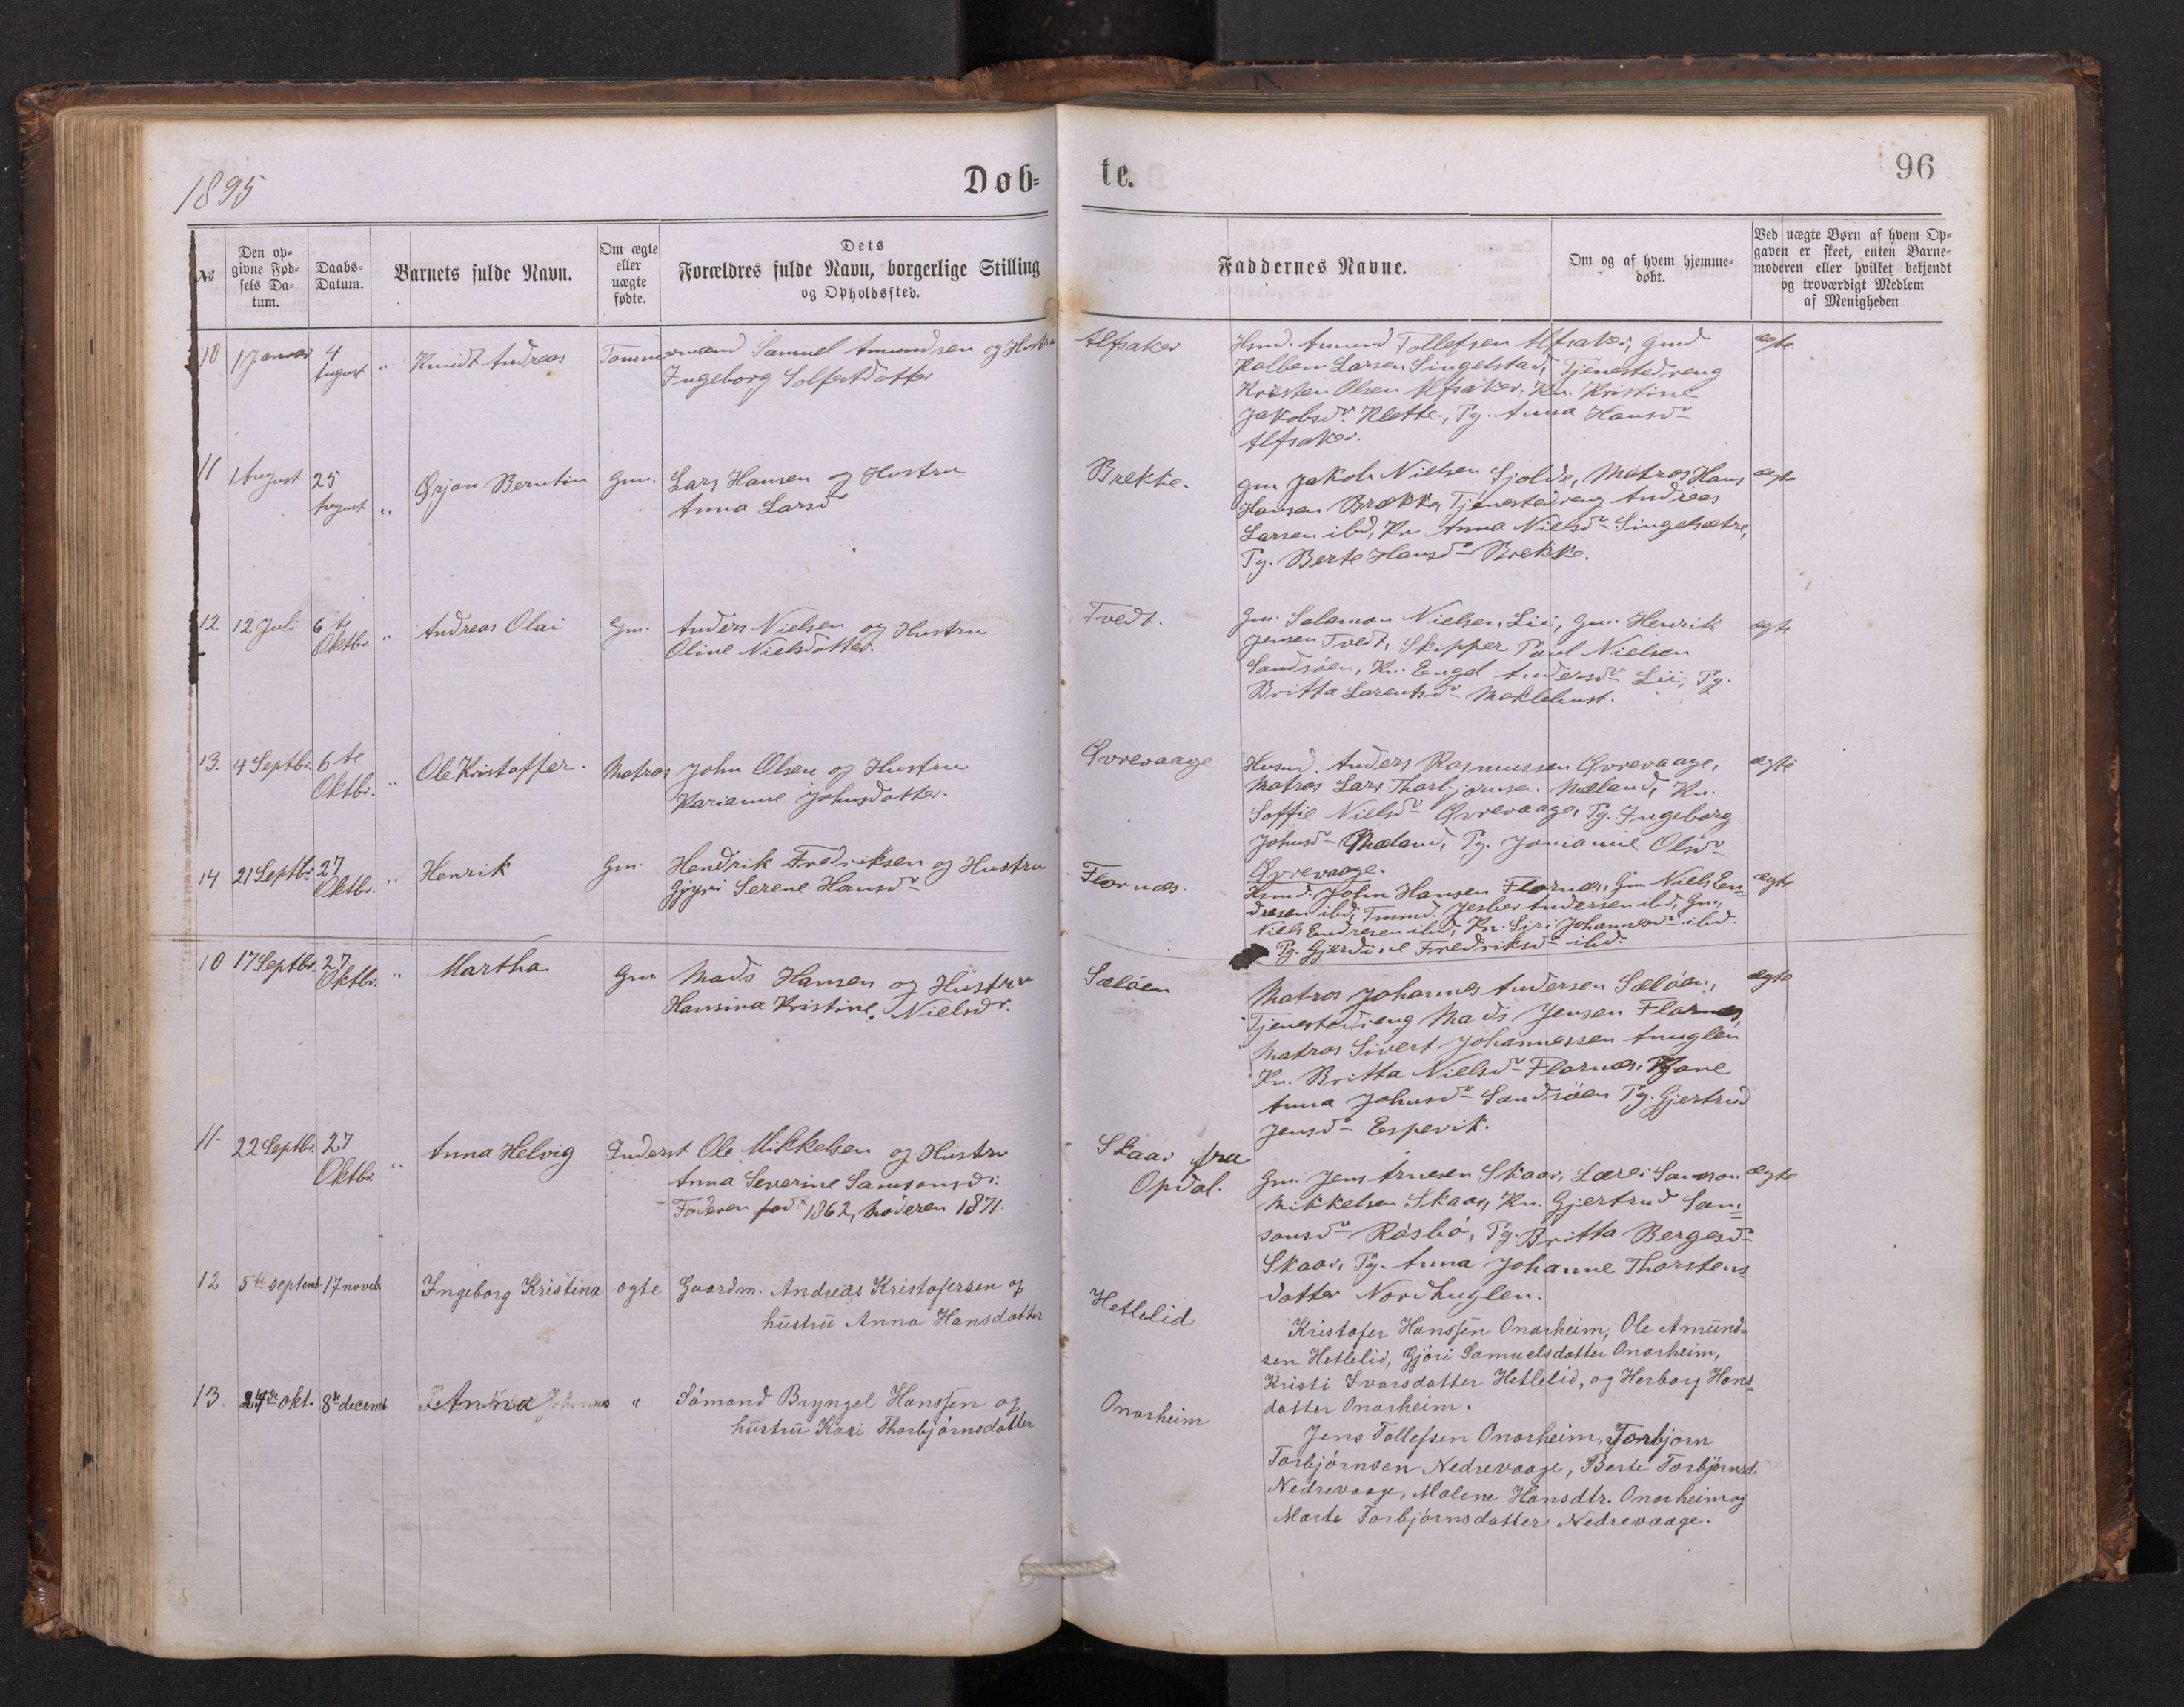 1895
Døb=
te.
96
No
Den op=
givne Fød=
sels Da=
tum.
Daabs=
Datum.
Barnets fulde Navn.
Om ægte
eller
uægte
fødte.
Dets
Forældres fulde Navn, borgerlige Stilling
og Opholdssted.
Faddernes Navne.
Om og af hvem hjemme=
døbt.
Ved uægte Børn af hvem Op=
gaven er skeet, enten Barne=
moderen eller hvilket bekjendt
og troværdigt Medlem
af Menigheden
10 1 Januar 4 August " Knudt Andreas Tømmermand Samuel Amundsen og Hustru
Ingeborg Solfestdatter
Alfsaker
Hsmd. Amund Tollefsen Alfsaker, Gmd
Kolben Larsen Singelstad, Tjenestedreng
Kristen Olsen Alfsaker, Kn. Kristine
Jakobsdr. Klette., Pg. Anna Hansdr
Alfsaker.
ægte
11 1 August 25 August " Ørjan Berntin Gm. Lars Hansen og Hustru
Anna Larsd
Brekke.
Gm Jakob Nielsen Sjolde, Matros Hans
Hansen Brække, Tjenestedreng Andreas
Larsen ibd, Kn Anna Nielsdr Singelsætre,
Pg. Berte Hansdr Brekke.
ægte
12 12 Juli 6te Oktbr. " Andreas Olai Gm. Anders Nielsen og Hustru
Oline Nielsdatter.
Tvedt.
Gm. Salamon Nielsen Lii, Gm. Henrik
Jensen Tvedt, Skipper Paul Nielsen
Sandsøen, Kn. Engel Andersdr Lii, Pg.
Britta Larentsdr Møklebust.
ægte
13. 4 Septbr. 6te Oktbr. " Ole Kristoffer. Matros John Olsen og Hustru
Karianne Johnsdatter.
Øvrevaage
Husmd. Anders Rasmussen Øvrevaage,
Matros Lars Thorbjørnsen Mæland, Kn.
Soffie Nielsdr Øvrevaage, Pg. Ingeborg
Johnsdr Mæland, Pg. Janianne Olsdr
Øvrevaage.
ægte
14 21 Septbr. 27 Oktbr. " Henrik Gm. Hendrik Fredriksen og Hustru
Gjyri Serene Hansdr
Flornæs.
Hsmd. John Hansen Flornæs, Gm. Niels En=
dresen ibd, Jesber Andersen ibd, Gm,
Niels Endresen ibd, Kn. Siri Johannesdr ibd.
Pg. Gjerdine Fredriksdr ibd.
ægte
10 17 Septbr. 27 Oktbr. " Martha Gm Mads Hansen og Hustru
Hansina Kristine, Nielsdr.
Sæløen
Matros Johannes Andersen Sæløen,
Tjenestedreng Mads Jensen Flornæs,
Matros Sivert Johannessen Anuglen
Kn. Britta Nielsdr Flornæs,
Anna Johnsdr Sandsøen Pg. Gjertrud
Jensdr Espevik.
ægte
11. 22 Septbr. 27 Oktbr. " Anna Helvig Inderst Ole Mikkelsen og Hustru
Anna Severine Samsonsdr.
Faderen fød 1862, Moderen 1871.
Skaar fra
Opdal.
Gm. Jens Arnesen Skaar, Lærer Samson
Mikkelsen Skaar, Kn. Gjertrud Sam=
sonsdr Røsbø, Pg. Britta Bergesdr
Skaar, Pg. Anna Johanne Thorstens
datter Nordhuglen.
ægte
12 5te septemb. 17 noveb. Ingeborg Kristina ægte Gaardm. Andreas Kristofersen og
hustru Anna Hansdatter
Hetlelid
Kristofer Hanssen Onarheim, Ole Amund=
sen Hetlelid, Gjøri Samuelsdatter Onarheim,
Kristi Ivarsdatter Hetlelid, og Herborg Hans=
datter Onarheim.
13. 24de okt. 8de decemb. Anna Johanna " Sømand Bryngel Hanssen og
hustru Kari Thorbjørnsdatter
Onarheim
Jens Tollefsen Onarheim, Torbjørn
Torbjørnsen Nedrevaage, Berte Torbjørnsd.
Nedrevaage, Malene Hansdtr. Onarheim og
Marte Torbjørnsdatter Nedrevaage.